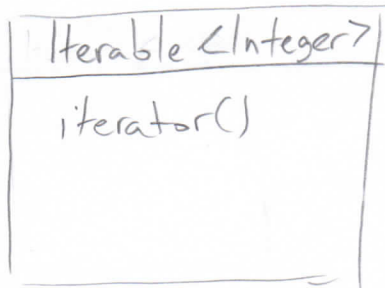 Iterable <Integer>
iterator()